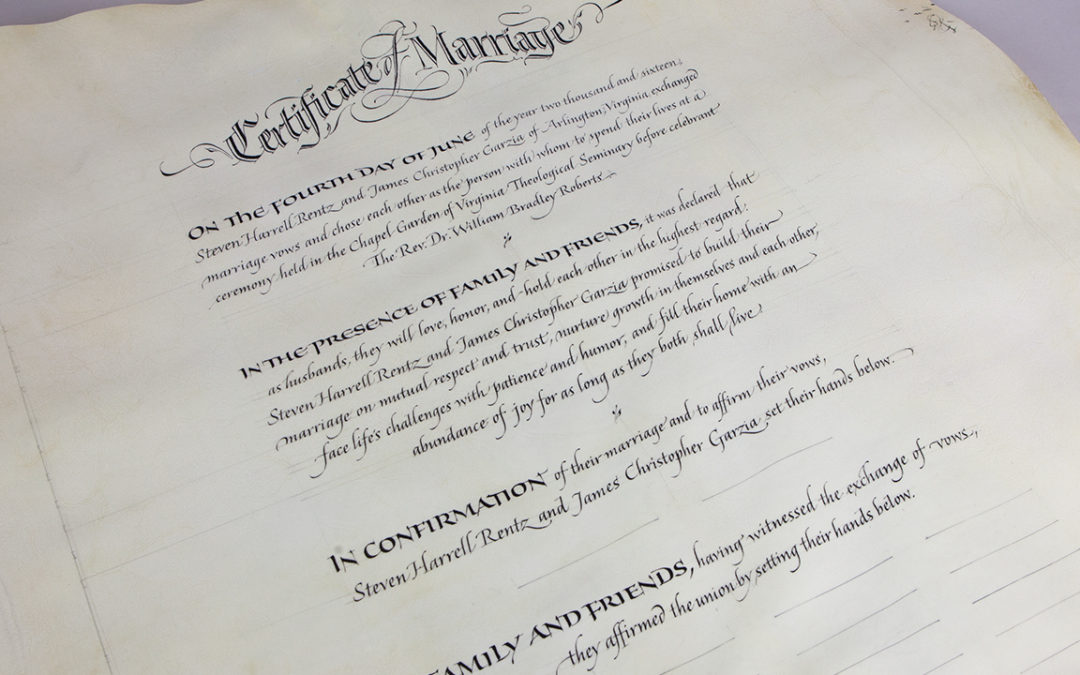 Certificate of Marriage
ON THE FOURTH DAY OF JUNE of the year two thousand and sixteen,
Steven Harrell Rentz and James Christopher Garzia of Arlington, Virginia exchanged
marriage vows and chose each other as the person with whom to spend their lives at a
ceremony held in the Chapel Garden of Virginia Theological Seminary before celebrant
The Rev. Dr. William Bradley Roberts
IN THE PRESENCE OF FAMILY AND FRIENDS, it was declared that
as husbands, they will love, honor, and hold each other in the highest regard.
Steven Harrell Rentz and James Christopher Garzia promised to build their
marriage on mutual respect and trust, nurture growth in themselves and each other,
face life's challenges with patience and humor, and fill their home with an
abundance of joy for as long as they both shall live
IN CONFIRMATION of their marriage and to affirm their vows,
Steven Harrell Rentz and James Christopher Garzia set their hands below.
FAMILY AND FRIENDS, having witnessed the exchange of vows,
they affirmed the union by setting their hands below.